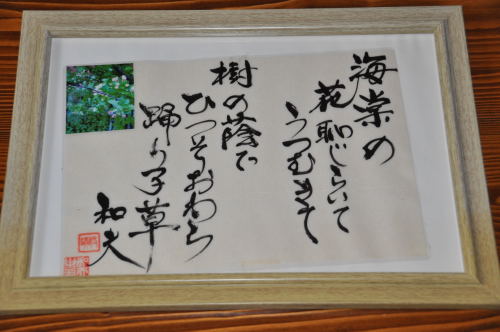 海棠の
花恥じらいて
うつむきて
樹の蔭で
ひっそりおわら
踊り子草
和夫